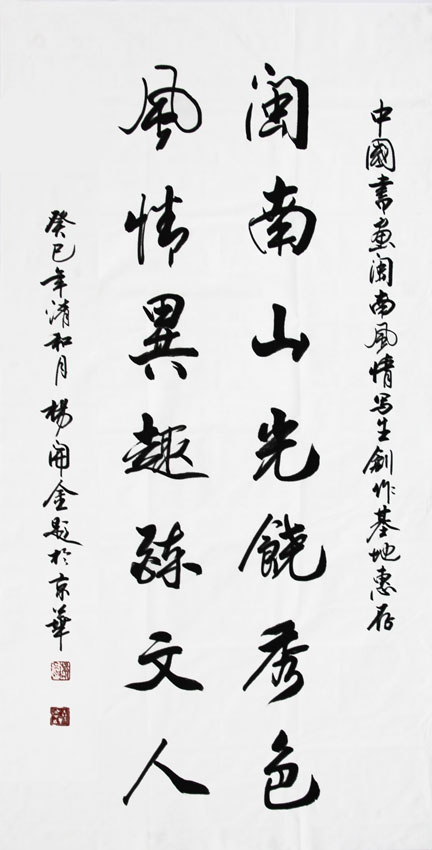 中國書画閩南風情写生創作基地惠存
閩南山光饒秀色
風情異趣醉文人
癸巳年清和月 楊開金題於京華